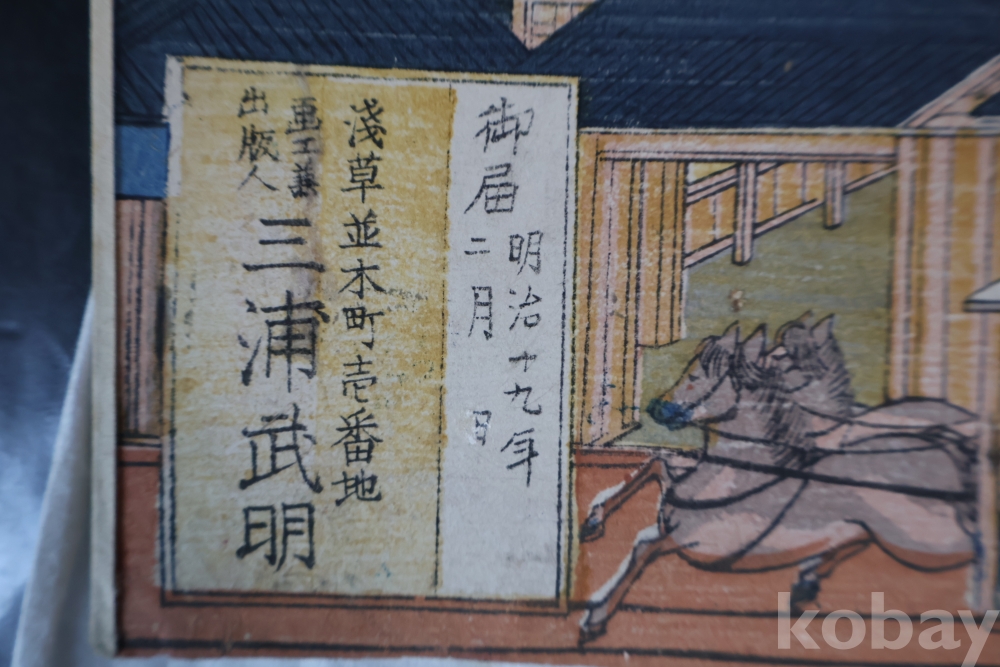 御届
明治十九年
二月 日
淺草並木町壱番地
画工兼
出版人
三浦武明
kobay